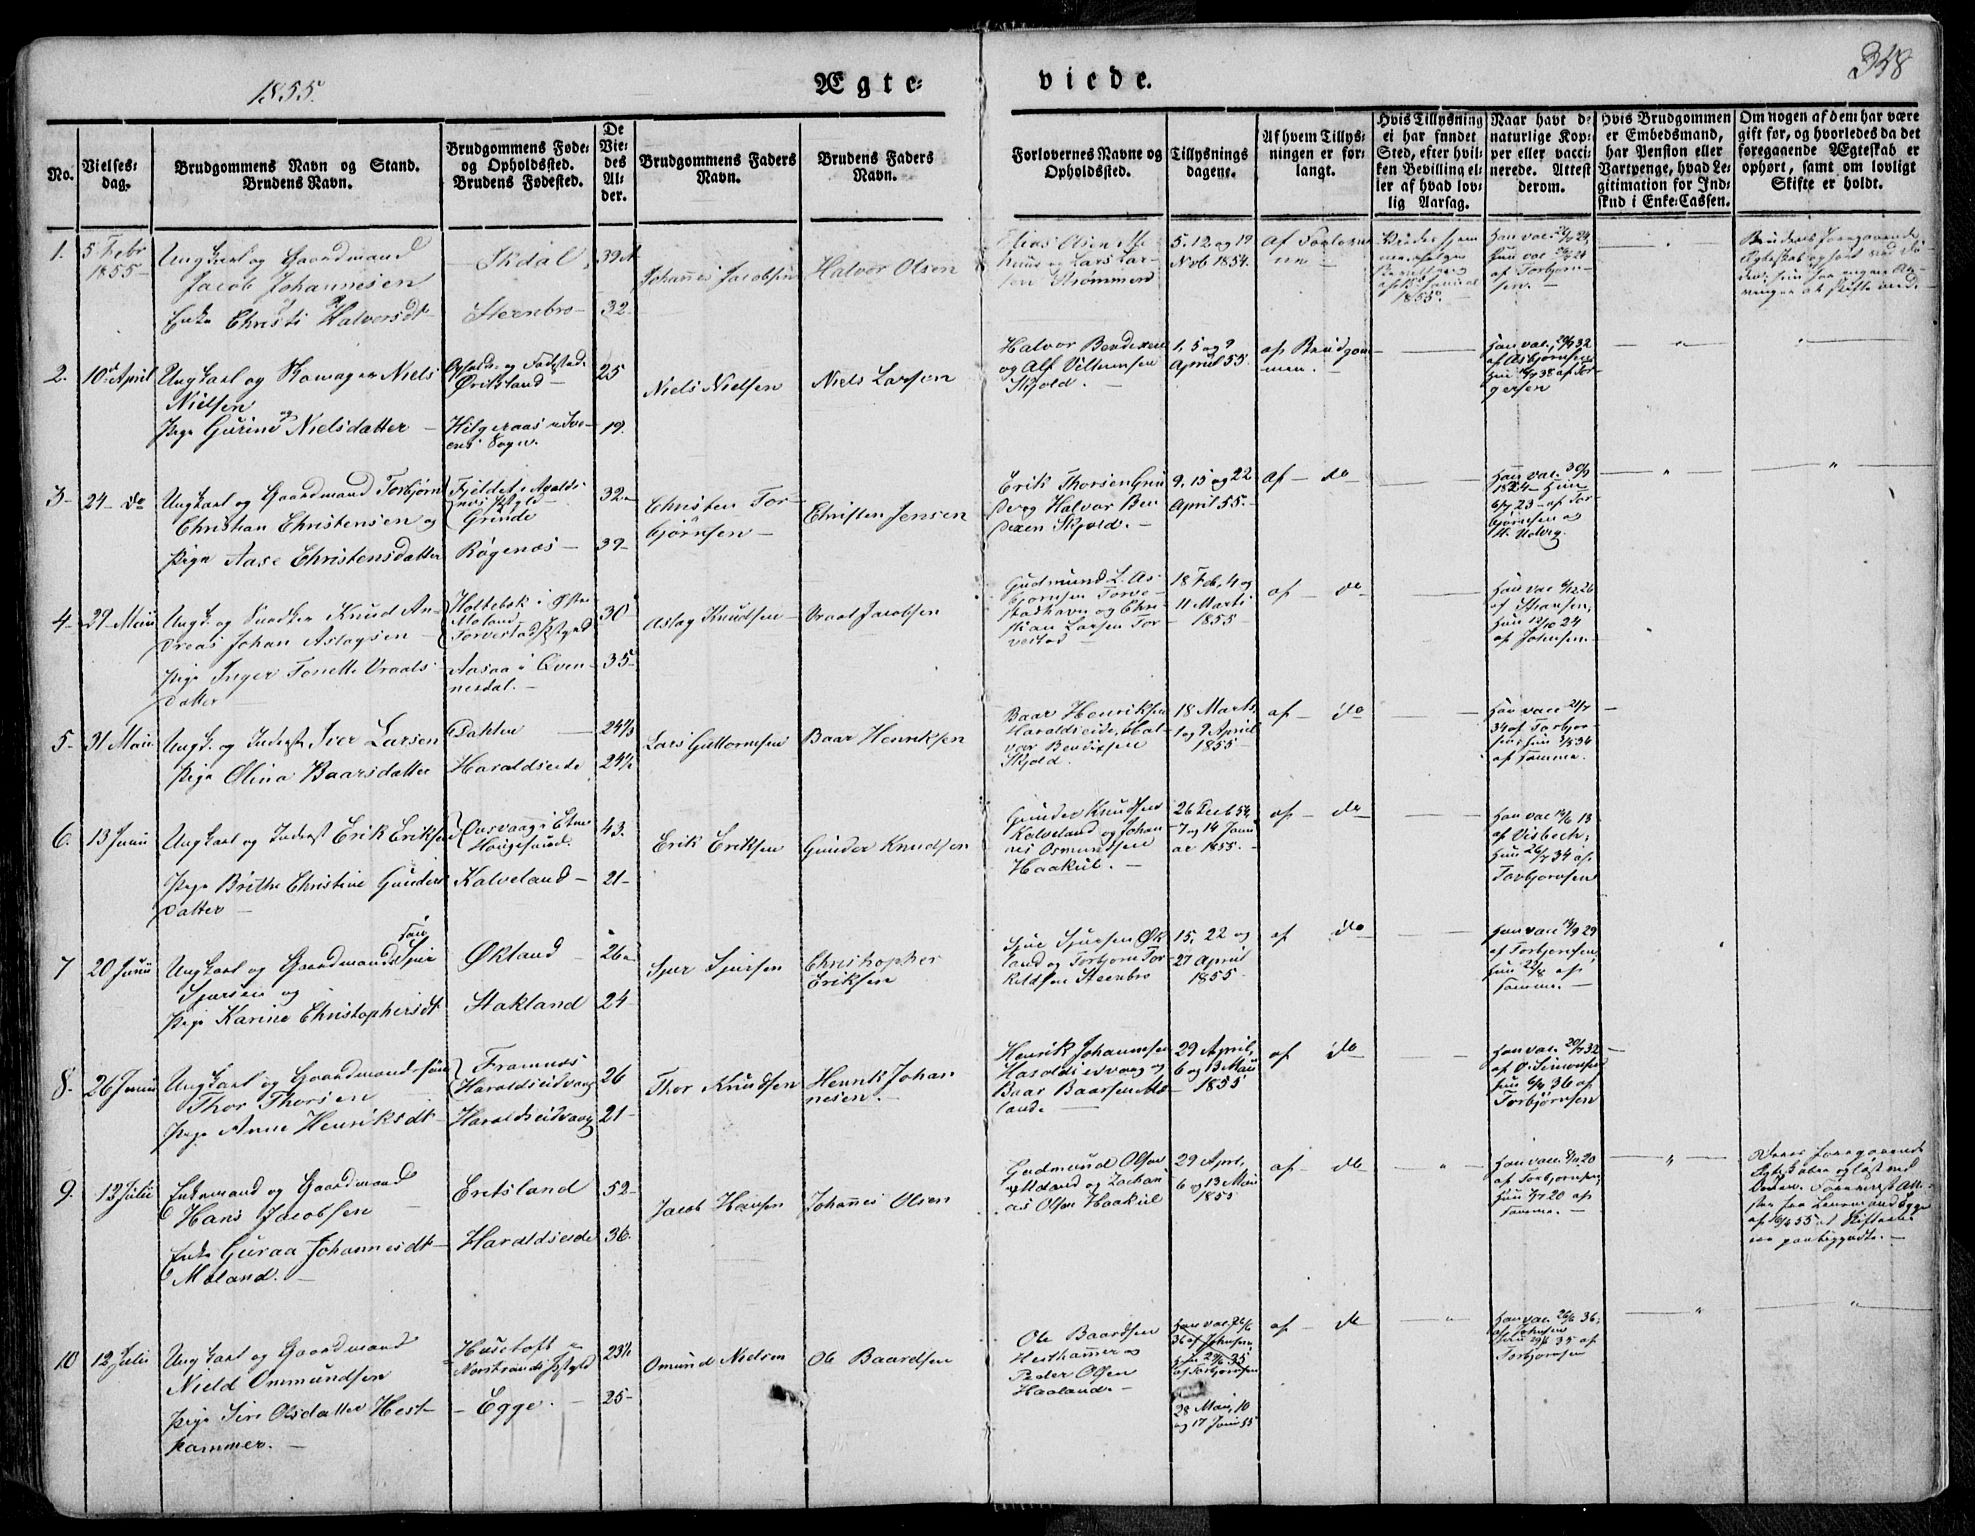 1855.
Ægte=
viede.
358
No.
Vielses=
dag.
Brudgommens Navn og Stand.
Brudens Navn.
Brudgommens Føde=
og Opholdssted.
Brudens Fødested.
De
Vie=
des
Al=
der.
Brudgommens Faders
Navn.
Brudens Faders
Navn.
Forlovernes Navne og
Opholdssted.
Tillysnings
dagene.
Af hvem Tillys=
ningen er for=
langt.
Hvis Tillysning
ei har fundet
Sted, efter hvil=
ken Bevilling el=
ler af hvad lov=
lig Aarsag.
Naar havt de
naturlige Kop=
per eller vacci=
nerede. Attest
derom.
Hvis Brudgommen
er Embedsmand,
har Pension eller
Vartpenge, hvad Le=
gitimation for Ind=
skud i Enke=Cassen.
Om nogen af dem har være
gift før, og hvorledes da det
foregaaende Ægteskab er
ophørt, samt om lovligt
Skifte er holdt.
1.
5 Febr
1855
Ungkarl og Gaardmand
Jacob Johannesen
og
Enke Christi Halversdt
Skdal
Steensbro
39
32
Johannes Jacobsen
Halvor Olsen
Elias Olsen
og Lars Lar-
sen Strømmen
5, 12 og 19
Nov 1854.
Af Forlover-
ne
1855.
Han vac
Hun vac
af Torbjørn-
sen.
Brudens foregaaende
Ægteskab ophørt ved Dø-
den
2.
10de April
Ungkarl og Niels
Nielsen
og
Pige Gurine Nielsdatter
Opholds- og Fødested
Østesland
Helgeraas
Sogn.
25
19.
Niels Nielsen
Niels Larsen
Halvor Bendixen
og Alf Villumsen
Skjold.
1, 5 og 9
April 55.
af Brudgom-
men.
Han vac. 32
af Asbjørnsen
Hun 38 af Tor-
gersen
3
24 do
Ungkarl og Gaardmand Torbjørn
Christian Christensen og
Pige Aase Christensdatter
Fjeldet i Avalds-
nes Pgld
Grinde
Røgenæs
32
39
Christen Tor-
bjørnsen
Christen Jensen
Erik Thorsen Grin-
de og Halvor Ben-
dixen Skjold.
9, 15 og 22
April 55.
af do
Han vac.
1824 Hun
6/7 23 af Tor-
bjørnsen og
4
29 Mai
Ungk. og Knud An-
dreas Johan Aslagsen
Pige Inger Tonette Vraals-
datter
Holtebek i Østre
Moland
Torvestad Pgld
Aasaa i Qvin-
nesdal.
30
35
Aslag Knudsen
Vraal Jacobsen
Gudmund L. As-
bjørnsen Torve-
stadhavn og Chri-
stian Larsen Tor-
vestad
18 Feb, 4 og
11 Marti
1855
af do
Han vac 26
af Stransen,
Hun 12/10 24
af Johnsen
5
31 Mai
Ungk. og Inderst Iver Larsen
Pige Olina Baarsdatter
Dahlen
Haraldseide
24 1/2
24 1/2
Lars Guttormsen
Baar Henriksen
Baar Henriksen
Haraldseide, Hal-
vor Bendixen
Skjold.
18 Marts
1 og 9 April
1855
af do
Han vac 21/7
34 af Torbjør-
34
af samme.
6.
13 Juni
Ungkarl og Inderst Erik Eriksen
Pige Brithe Christine Gunders-
datter
i Etne
Haugesund.
Kalveland
43.
21
Erik Eriksen
Gunder Knudsen
Gunder Knudsen
Kalveland og Johan-
nes Osmundsen
Haakul.
26 Decb 54,
7 og 14 Janu-
ar 1855.
af do
Han vac 13
af Visbech,
Hun 34 af
Torbjørnsen
7
20 Juni
Ungkarl og Gaardmands Søn Sjur
Sjursen og
Pige Karine Christophersdt
Økland
Stakland
26
24
Sjur Sjursen
Christopher
Eriksen
Sjur Sjursen Øk-
land og Torbjørn Tor-
kildsen Steensbro
15, 22 og
27 April
1855
af do
Han vac 29
af Torbjørnsen,
Hun af
samme.
8.
26 Juni
Ungkarl og Gaardmandssøn
Thor Thorsen
Pige Anne Henriksdt
Framnæs
Haraldseidvaag
Haraldseidvaag
26
21
Thor Knudsen
Henrik Johan-
nesen.
Henrik Johannesen
Haraldseidvaag og
Baar Baarsen Mø-
lande
29 April,
6 og 13 Mai
1855
af do
Han vac. 32
af
Hun 36 af
Torbjørnsen
9.
12 Julii
Enkemand og Gaardmand
Hans Jacobsen
Enke Guraa Johannesdt
Møland.
Eritsland
Haraldseide
52
36.
Jacob Hansen
Johannes Olsen
Gudmund Olsen
Møland og Zachari-
as Olsen Haakul
29 April,
6 og 13 Mai
1855
af do
Han vac. 20
af Torbjørnsen,
Hun 20 af
samme.
Deres foregaaende
Ægteskaber opløst ved
Døden.
Lensmand Egge
55 at Skifterne
ere paabegyndte.
10
12 Julii
Ungkarl og Gaardmand
Nield Ommundsen
Pige Siri Olsdatter Hest-
hammer.
Husetoft
Norstrands Pgld
Egge.
23 1/2
25
Omund Nielsen
Ole Baardsen
Ole Baardsen
Hesthammer og
Peder Olsen
Haaland.
Han vac. 26/6
36 af Johnsen,
Hun 29/6 35
af Torbjørnsen
28 Mai, 10
og 17 Juni 55
af do
Han vac 26/6 36,
af Johnsen
Hun 29/6 35 af
Torbjørnsen